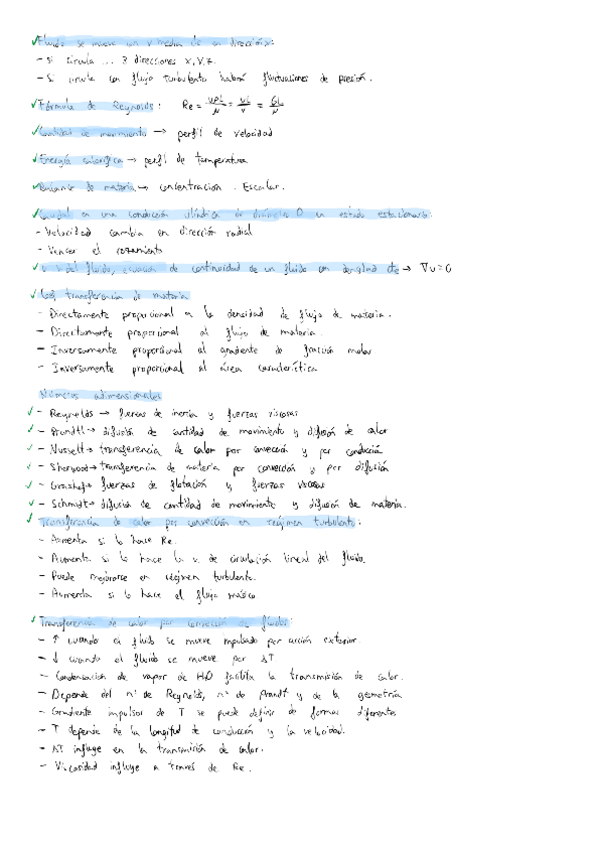 ✓ Fluido se mueve con v media de su dirección x:
- Si circula ... 3 direcciones x, y, z.
- Si circula con flujo turbulento habrá fluctuaciones de presión.
✓ Fórmula de Reynolds: Re = vρL/μ = vL/ν = GL/μ
✓ Cantidad de movimiento → perfil de velocidad
✓ Energía calorífica → perfil de temperatura
✓ Balance de materia → concentración. Escalar.
✓ Caudal en una conducción cilíndrica de diámetro D en estado estacionario:
- Velocidad cambia en dirección radial
- Vencer el rozamiento
✓ del fluido, ecuación de continuidad de un fluido con densidad cte → ∇v = 0
✓ Coef transferencia de materia
- Directamente proporcional a la densidad de flujo de materia.
- Directamente proporcional al flujo de materia.
- Inversamente proporcional al gradiente de fracción molar
- Inversamente proporcional al área característica
Números adimensionales
✓ - Reynolds → fuerzas de inercia y fuerzas viscosas
✓ - Prandtl → difusión de cantidad de movimiento y difusión de calor
✓ - Nusselt → transferencia de calor por convección y por conducción
✓ - Sherwood → transferencia de materia por convección y por difusión
✓ - Grashof → fuerzas de flotación y fuerzas viscosas
✓ - Schmidt → difusión de cantidad de movimiento y difusión de materia.
✓ Transferencia de calor por convección en régimen turbulento:
- Aumenta si lo hace Re.
- Aumenta si lo hace la v. de circulación lineal del fluido.
- Puede mejorarse en régimen turbulento.
- Aumenta si lo hace el flujo másico.
✓ Transferencia de calor por convección de fluidos:
- ↑ cuando el fluido se mueve impulsado por acción exterior.
- ↓ cuando el fluido se mueve por ΔT
- Condensación de vapor de H2O facilita la transmisión de calor.
- Depende del nº de Reynolds, nº de Prandt y de la geometría
- Gradiente impulsor de T se puede definir de formas diferentes
- T depende de la longitud de conducción y la velocidad.
- ΔT influye en la transmisión de calor.
- Viscosidad influye a través de Re.